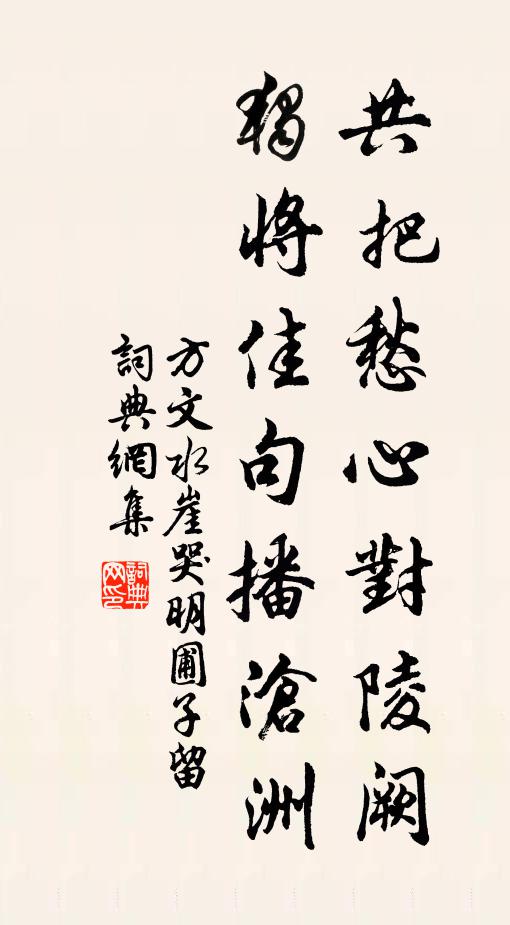 共把愁心對陵闕
獨將佳句播滄洲
方文水崖哭明圃子留
詞典網集
詞典网印